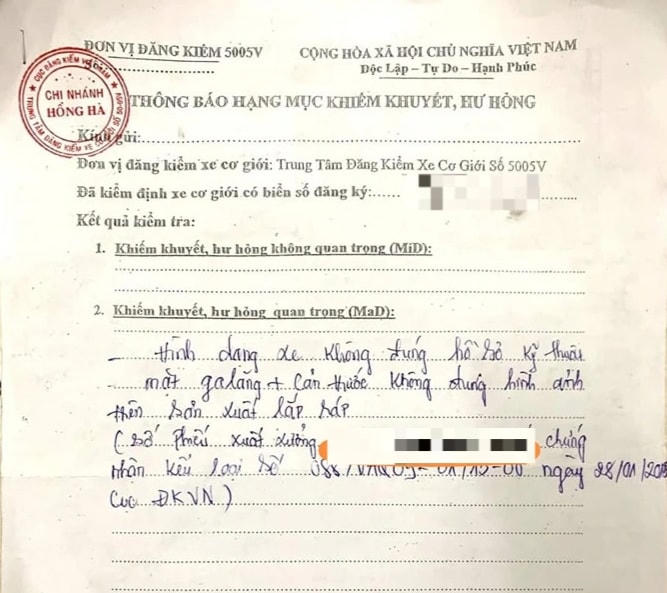 ĐƠN VỊ ĐĂNG KIỂM 5005V
CỘNG HÒA XÃ HỘI CHỦ NGHĨA VIỆT NAM
Độc Lập – Tự Do – Hạnh Phúc
CỤC ĐĂNG KIỂM VIỆT NAM
CHI NHÁNH
HỒNG HÀ
THÔNG BÁO HẠNG MỤC KHIẾM KHUYẾT, HƯ HỎNG
Kính gửi:
Đơn vị đăng kiểm xe cơ giới: Trung Tâm Đăng Kiểm Xe Cơ Giới Số 5005V
Đã kiểm định xe cơ giới có biển số đăng ký:
Kết quả kiểm tra:
1. Khiếm khuyết, hư hỏng không quan trọng (MiD):
2. Khiếm khuyết, hư hỏng quan trọng (MaD):
- Hình dạng xe không đúng hồ sơ kỹ thuật
mặt galăng + Cản trước không đúng hình ảnh
trên sản xuất lắp ráp
(số Phiếu xuất xưởng chứng
nhận kiểu loại số ngày 28/01/201
Cục ĐKVN)